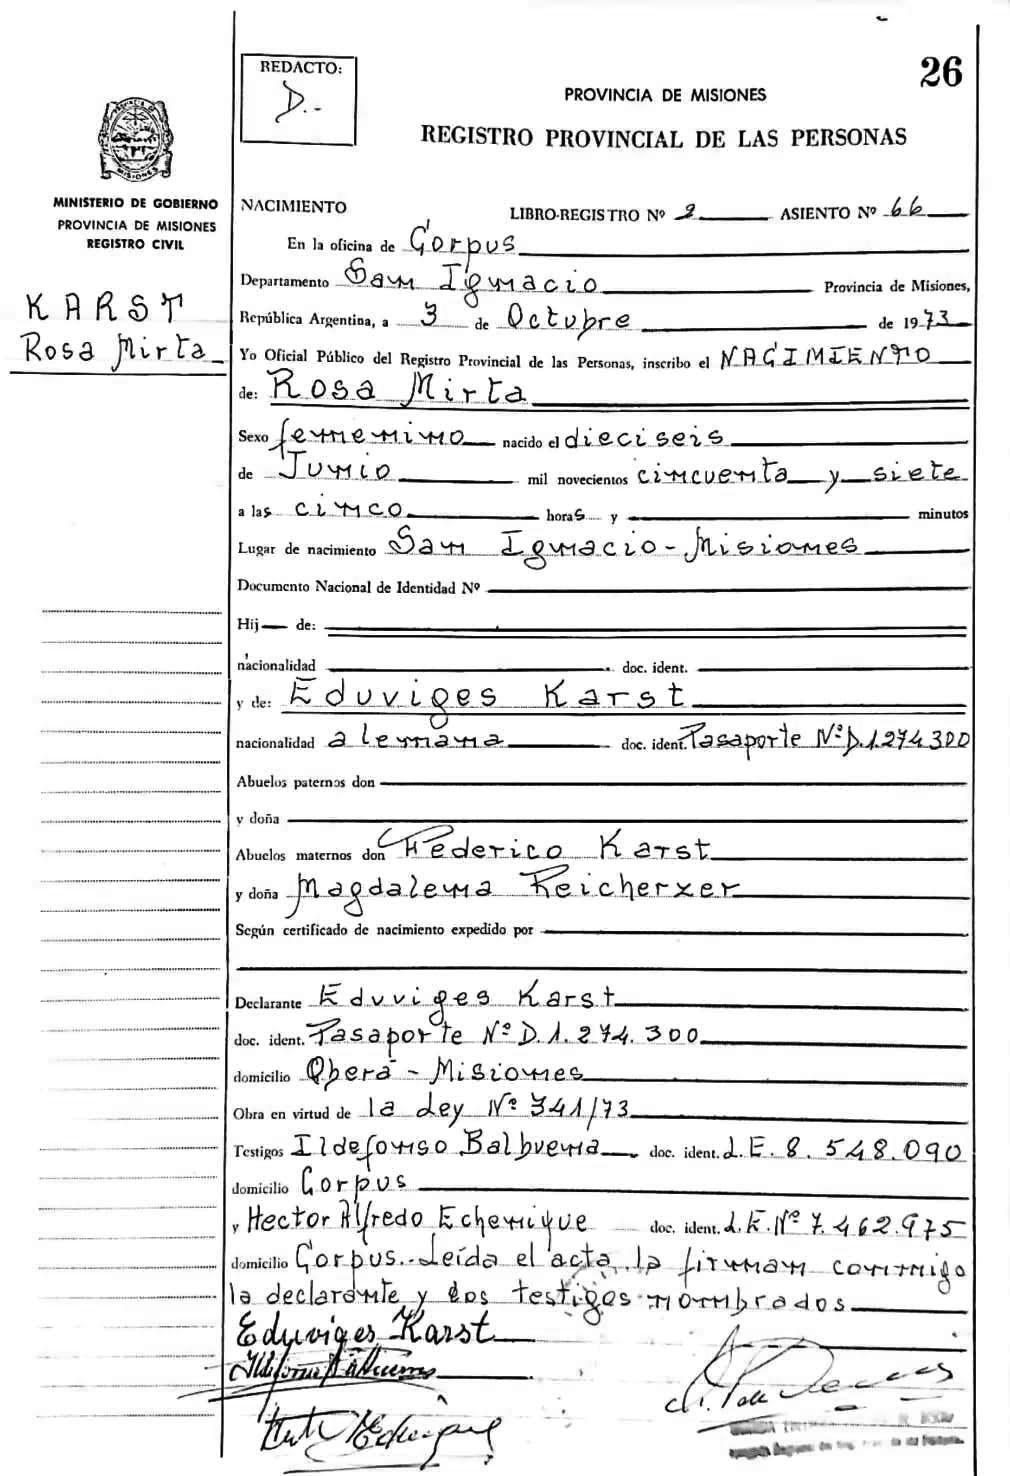 26
REDACTO:
D.-
PROVINCIA DE MISIONES
REGISTRO PROVINCIAL DE LAS PERSONAS
MISIONES
MINISTERIO DE GOBIERNO
PROVINCIA DE MISIONES
REGISTRO CIVIL
KARST
Rosa Mirta
NACIMIENTO LIBRO-REGISTRO Nº 2 ASIENTO Nº 66
En la oficina de Corpus
Departamento San Ignacio Provincia de Misiones,
República Argentina, a 3 de Octubre de 1973
Yo Oficial Público del Registro Provincial de las Personas, inscribo el NACIMIENTO
de: Rosa Mirta
Sexo femenino nacido el dieciseis
de Junio mil novecientos cincuenta y siete
a las cinco horas y minutos
Lugar de nacimiento San Ignacio - Misiones
Documento Nacional de Identidad Nº
Hij de:
nacionalidad doc. ident.
y de: Eduviges Karst
nacionalidad alemana doc. ident. Pasaporte Nº D.1.274.300
Abuelos paternos don
y doña
Abuelos maternos don Federico Karst
y doña Magdalena Reicherxer
Según certificado de nacimiento expedido por
Declarante Eduviges Karst
doc. ident. Pasaporte Nº D.1.274.300
domicilio Oberá - Misiones
Obra en virtud de la Ley Nº 341/73
Testigos Ildefonso Balbuena doc. ident. L.E. 8.548.090
domicilio Corpus
y Hector Alfredo Echenique doc. ident. L.E. Nº 7.462.975
domicilio Corpus.- Leída el acta, la firman conmigo
la declarante y los testigos nombrados
Eduviges Karst